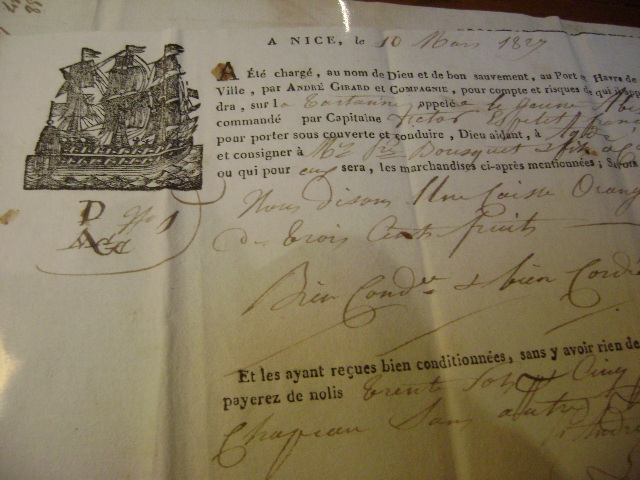 A NICE, le 10 Mars 1827
A Été chargé, au nom de Dieu et de bon sauvement, au Port e Havre de
Ville, par ANDRÉ GIRARD et COMPAGNIE, pour compte et risques de qui il app
dra, sur la Tartanne appelée le jeune
commandé par Capitaine Victor
pour porter sous couverte et conduire, Dieu aidant, à Agde
et consigner à Mrs Bousquet & fils
ou qui pour eux sera, les marchandises ci-après mentionnées; Savoir
P No 1
A&C
Nous disons Une Caisse Orang
de Trois Cents fruits
Bien Condée & bien Cordé
Et les ayant reçues bien conditionnées, sans y avoir rien de
payerez de nolis Trente Sols Cinq
Chapeau Sans autre